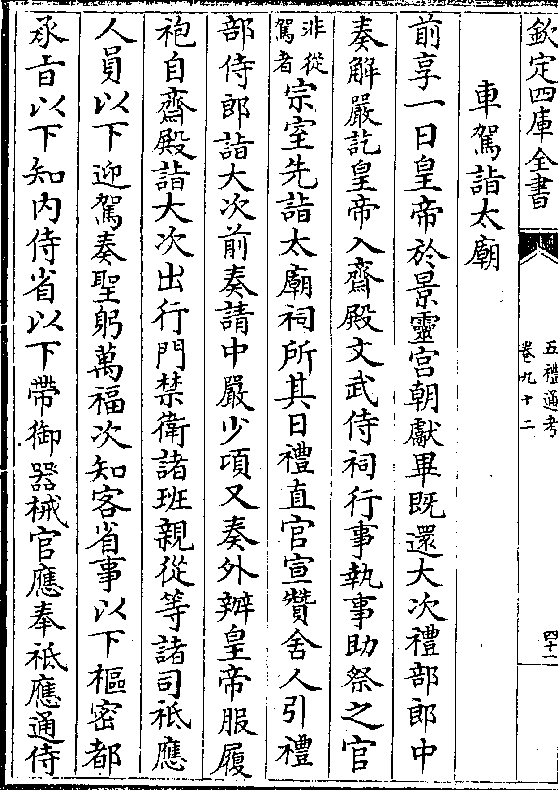 欽定四庫全書
五禮通考
卷九十二
四十一
車駕詣太廟
前享一日皇帝於景靈宮朝獻畢既還大次禮部郎中
奏解嚴訖皇帝入齋殿文武侍祠行事執事助祭之官
非從駕者宗室先詣太廟祠所其日禮直官宣贊舍人引禮
部侍郎詣大次前奏請中嚴少頃又奏外辦皇帝服履
袍自齋殿詣大次出行門禁衛諸班親從等諸司祗應
人員以下迎駕奏聖躬萬福次知客省事以下樞密都
承㫖以下知内侍省以下帶御器械官應奉祗應通侍